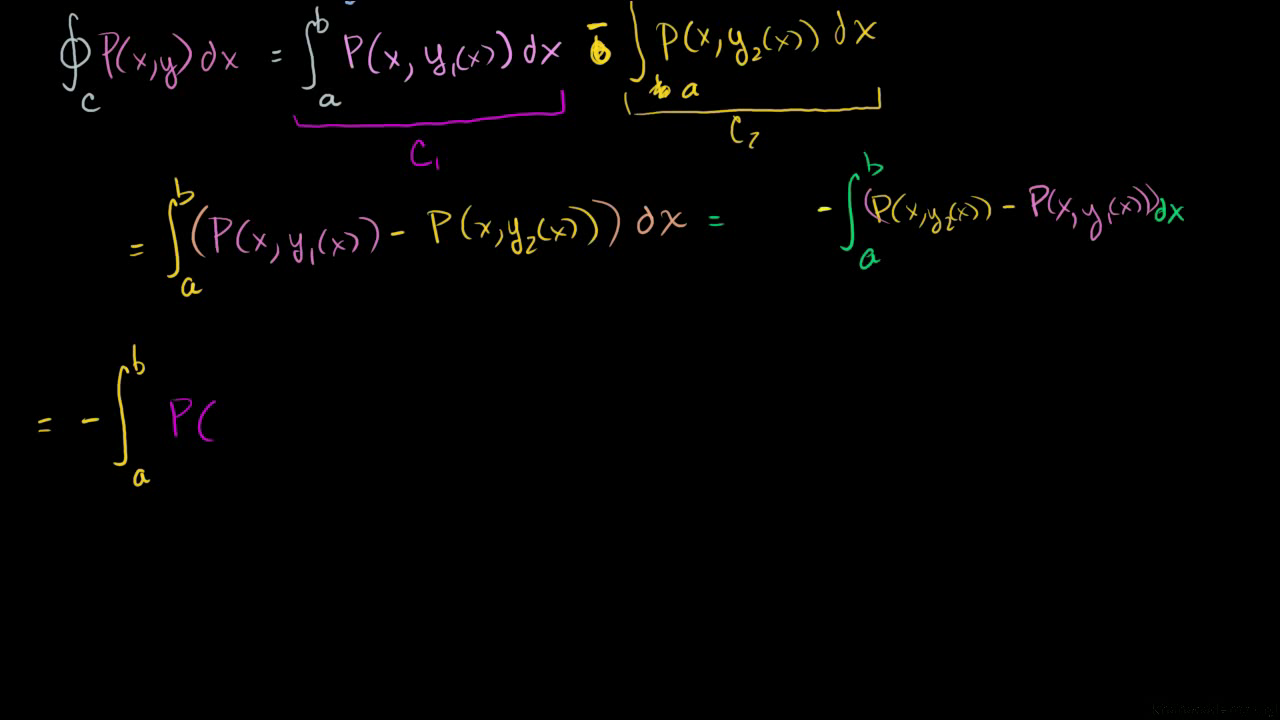 ∮_C P(x,y)dx = ∫_a^b P(x, y₁(x))dx - ∫_a P(x,y₂(x))dx
C₁ C₂
= ∫_a^b (P(x, y₁(x)) - P(x,y₂(x))) dx = - ∫_a^b (P(x,y₂(x)) - P(x,y₁(x)))dx
= - ∫_a^b P(